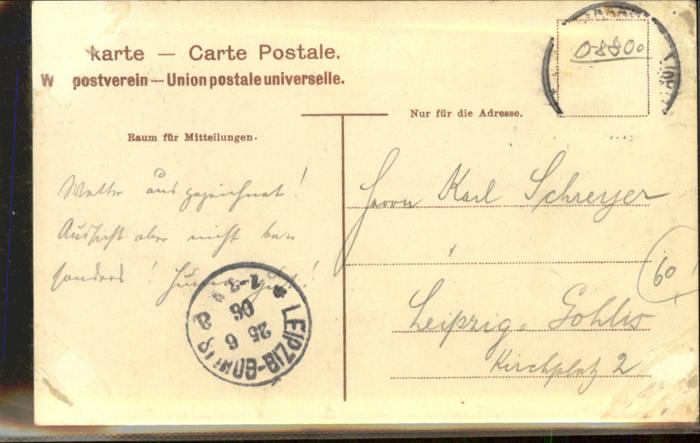 karte — Carte Postale.
W postverein — Union postale universelle.
Raum für Mitteilungen.
Wetter ausgezeichnet!
Aussicht aber nicht be
sonders!
LEIPZIG-GOHLIS
25 6
06
1-3
Nur für die Adresse.
08800
Herrn Karl Schreyer
Leipzig-Gohlis
Kirchplatz 2
60